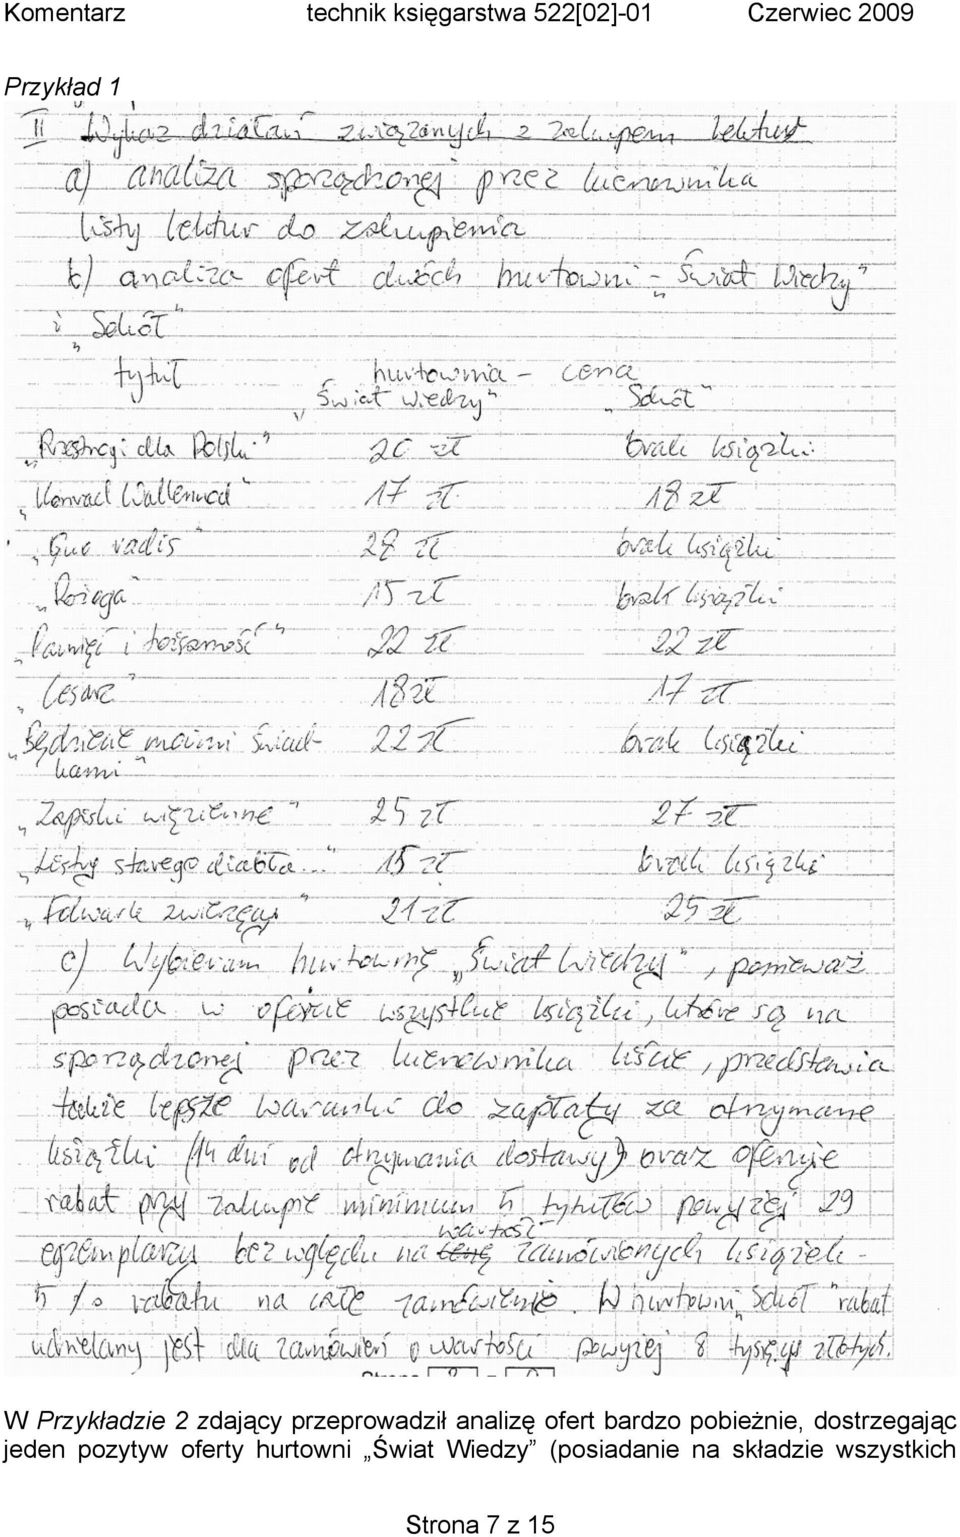 Komentarz technik księgarstwa 522[02]-01 Czerwiec 2009
Przykład 1
II Wykaz działań związanych z zakupem lektur
a) analiza sporządzonej przez kierownika
listy lektur do zakupienia
b) analiza ofert dwóch hurtowni - „Świat Wiedzy"
i „Sokół"
tytuł hurtownia - cena
„Świat wiedzy" „Sokół"
„Przestrogi dla Polski" 20 zł brak książki
„Konrad Wallenrod" 17 zł 18 zł
„Quo vadis" 28 zł brak książki
„Pożoga" 15 zł brak książki
„Pamięć i tożsamość" 22 zł 22 zł
„Cesarz" 18 zł 17 zł
„Będziecie moimi świad- 22 zł brak książki
kami"
„Zapiski więzienne" 25 zł 27 zł
„Listy starego diabła..." 15 zł brak książki
„Folwark zwierzęcy" 21 zł 25 zł
c) Wybieram hurtownię „Świat Wiedzy", ponieważ
posiada w ofercie wszystkie książki, które są na
sporządzonej przez kierownika liście, przedstawia
także lepsze warunki do zapłaty za otrzymane
książki (14 dni od otrzymania dostawy) oraz oferuje
rabat przy zakupie minimum 5 tytułów powyżej 29
egzemplarzy bez względu na wartość zamówionych książek -
5 % rabatu na całe zamówienie. W hurtowni „Sokół" rabat
udzielany jest dla zamówień o wartości powyżej 8 tysięcy złotych.
W Przykładzie 2 zdający przeprowadził analizę ofert bardzo pobieżnie, dostrzegając
jeden pozytyw oferty hurtowni „Świat Wiedzy” (posiadanie na składzie wszystkich
Strona 7 z 15